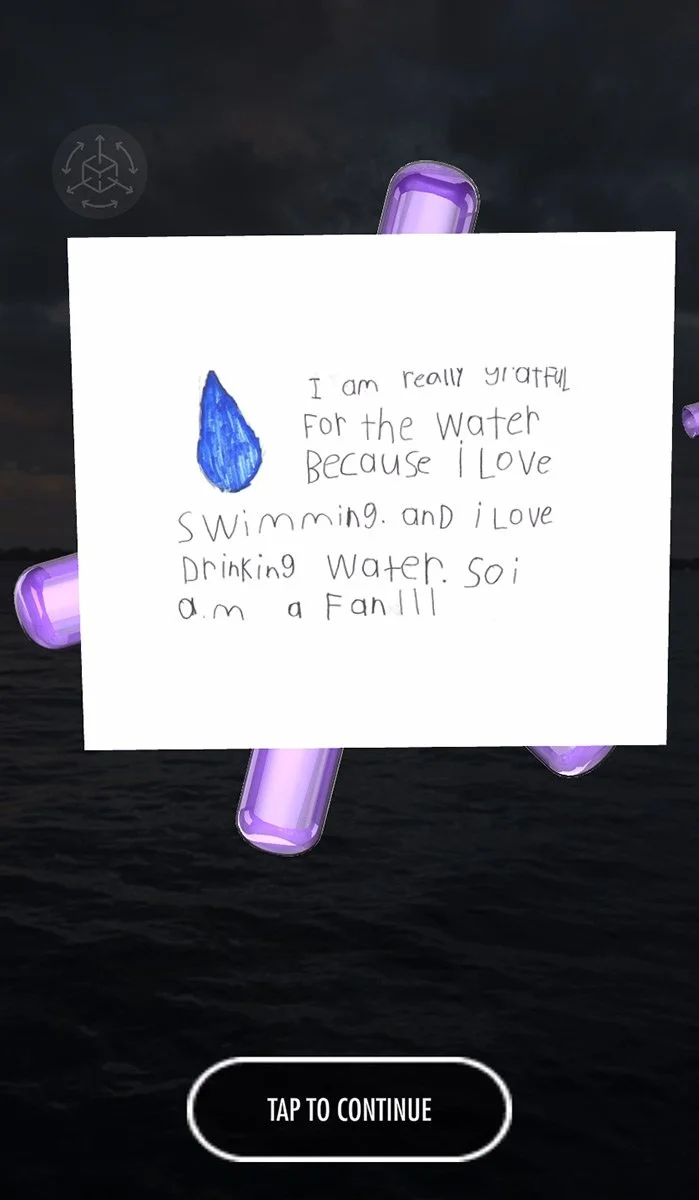 I am really gratful
For the water
Because i Love
swimming. and i Love
Drinking water. so i
a.m a Fan!!!
TAP TO CONTINUE